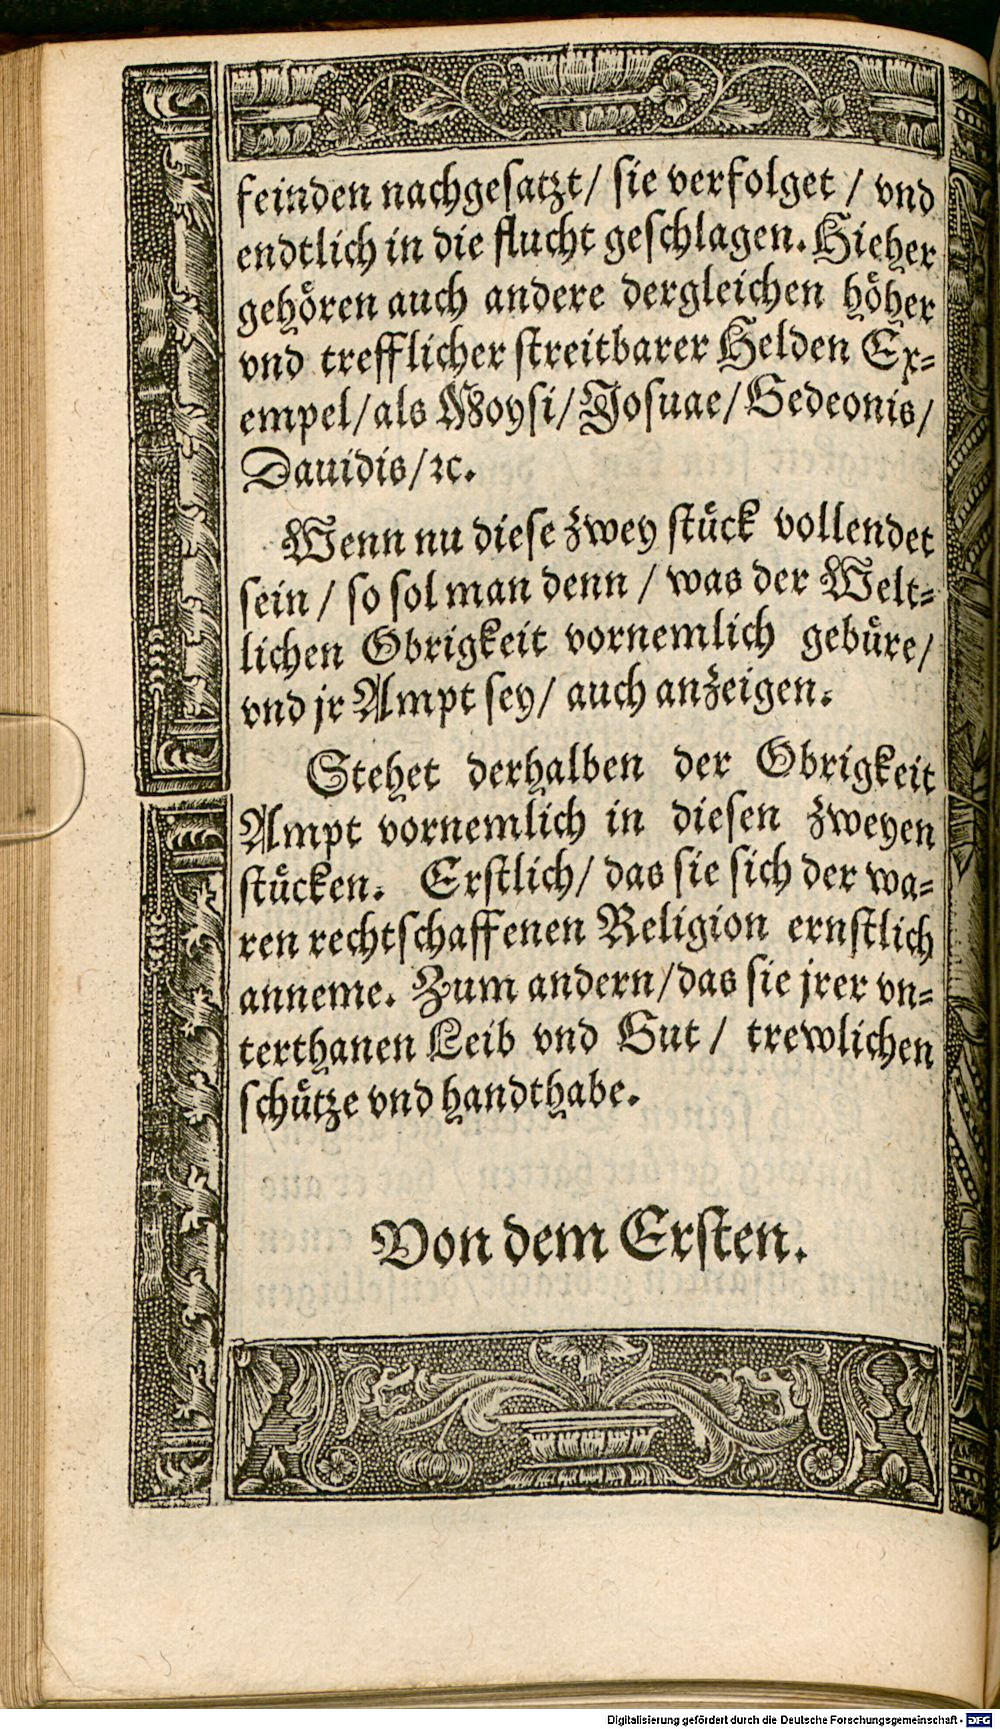 feinden nachgesatzt/ sie verfolget / vnd
endtlich in die flucht geschlagen. Hieher
gehören auch andere dergleichen höher
vnd trefflicher streitbarer Helden Ex-
empel/als Moysi/Josuae/Gedeonis/
Dauidis/ꝛc.
Wenn nu diese zwey stück vollendet
sein / so sol man denn / was der Welt-
lichen Obrigkeit vornemlich gebüre/
vnd jr Ampt sey/ auch anzeigen.
Stehet derhalben der Obrigkeit
Ampt vornemlich in diesen zweyen
stücken. Erstlich/ das sie sich der wa-
ren rechtschaffenen Religion ernstlich
anneme. Zum andern/das sie jrer vn-
terthanen Leib vnd Gut / trewlichen
schütze vnd handthabe.
Von dem Ersten.
Digitalisierung gefördert durch die Deutsche Forschungsgemeinschaft - DFG